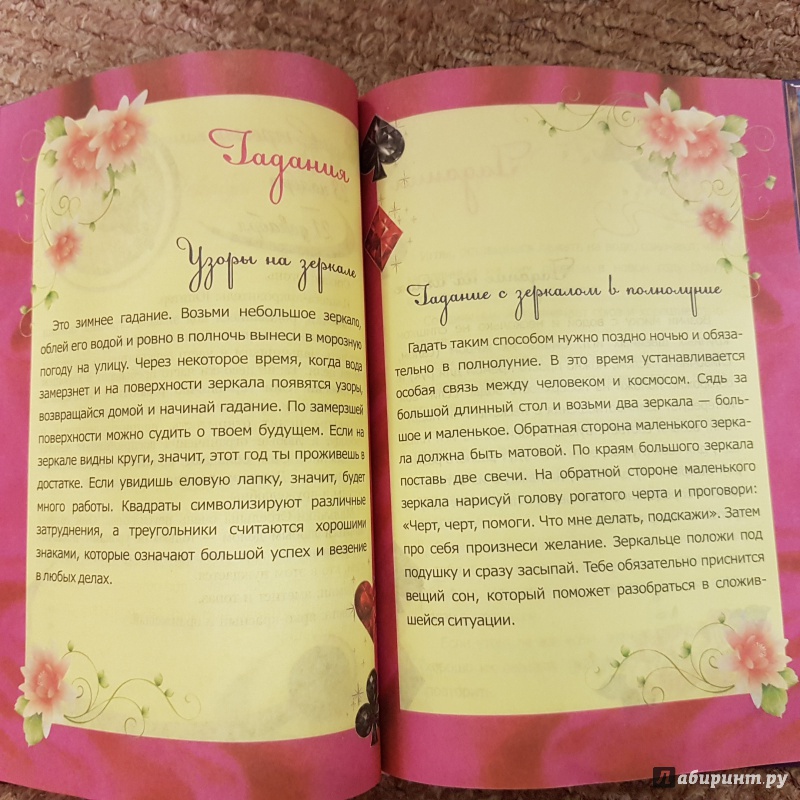 Гадания
Узоры на зеркале
Это зимнее гадание. Возьми небольшое зеркало,
облей его водой и ровно в полночь вынеси в морозную
погоду на улицу. Через некоторое время, когда вода
замерзнет и на поверхности зеркала появятся узоры,
возвращайся домой и начинай гадание. По замерзшей
поверхности можно судить о твоем будущем. Если на
зеркале видны круги, значит, этот год ты проживешь в
достатке. Если увидишь еловую лапку, значит, будет
много работы. Квадраты символизируют различные
затруднения, а треугольники считаются хорошими
знаками, которые означают большой успех и везение
в любых делах.
Гадание с зеркалом в полнолуние
Гадать таким способом нужно поздно ночью и обяза-
тельно в полнолуние. В это время устанавливается
особая связь между человеком и космосом. Сядь за
большой длинный стол и возьми два зеркала — боль-
шое и маленькое. Обратная сторона маленького зерка-
ла должна быть матовой. По краям большого зеркала
поставь две свечи. На обратной стороне маленького
зеркала нарисуй голову рогатого черта и проговори:
«Черт, черт, помоги. Что мне делать, подскажи». Затем
про себя произнеси желание. Зеркальце положи под
подушку и сразу засыпай. Тебе обязательно приснится
вещий сон, который поможет разобраться в сложив-
шейся ситуации.
Лабиринт.ру